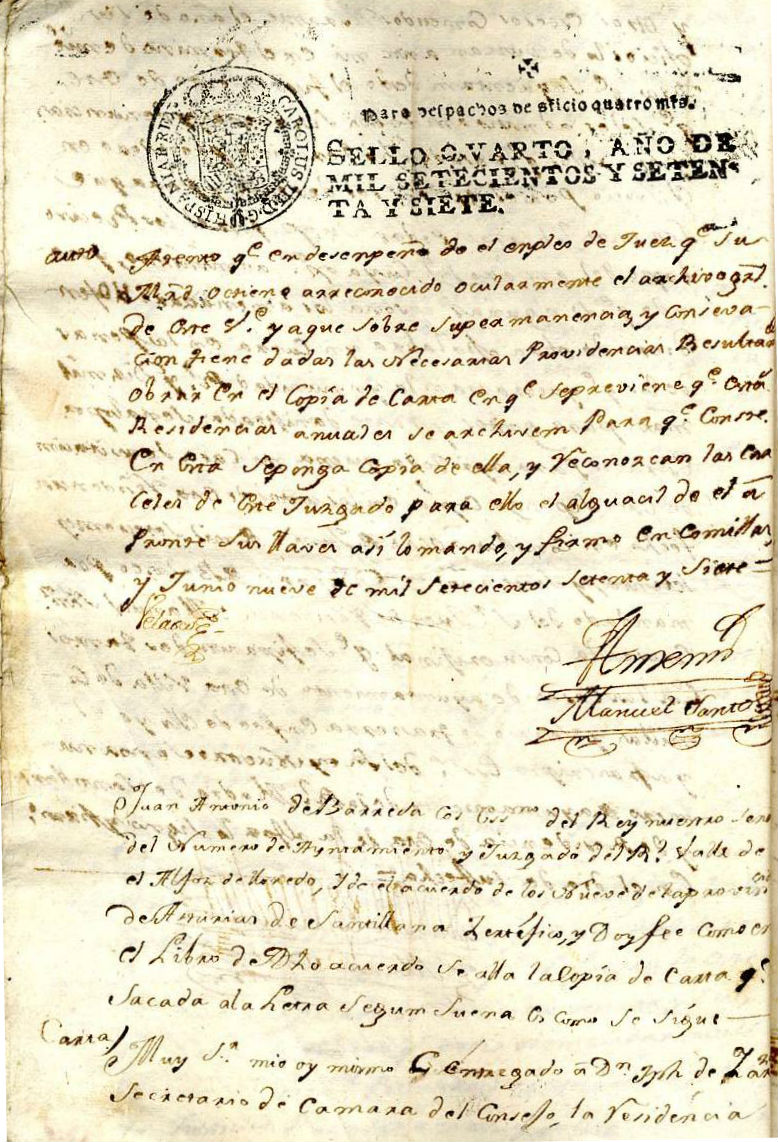 CAROLUS III D G HISPANIAR REX
Para despachos de oficio quatro mrs.
SELLO QVARTO, AÑO DE
MIL SETECIENTOS Y SETEN-
TA Y SIETE.
auto Atento q.e en desenpeño de el enpleo de Juez q.e su
Mrd. octiene arreconocido ocularmente el archivo gral.
de este y aque sobre supermanencia, y conseva-
cion tiene dadas las Necesarias Providencias Resultar
obrar en el Copia de Carta en q.e sepreviene q.e estas
Residencias anuales se archiven Para q.e Conste.
En esta seponga Copia de ella, y Reconozcan las Car
celes de este Juzgado para ello el alguacil de el a
Pronte sus llaves asi lo mando, y firmo en Comillas
y Junio nueve de mil setecientos setenta y siete
Antemi
Manuel Santos
Juan Antonio de Barreda es.no del Rey nuestro señor
del Numero de Ayuntamiento y Juzgado del R.l Valle de
el Alfoz de lloredo, y de el acuerdo de los Nueve de la provin
de Asturias de Santillana Zertifico, y Doy fee como en
el Libro de Dho acuerdo se alla la Copia de Carta q.e
sacada ala letra segun suena es como se sigue
Carta Muy S.r mio oy mismo é entregado a D.n Jph de
Secretario de Camara del Consejo, la Residencia